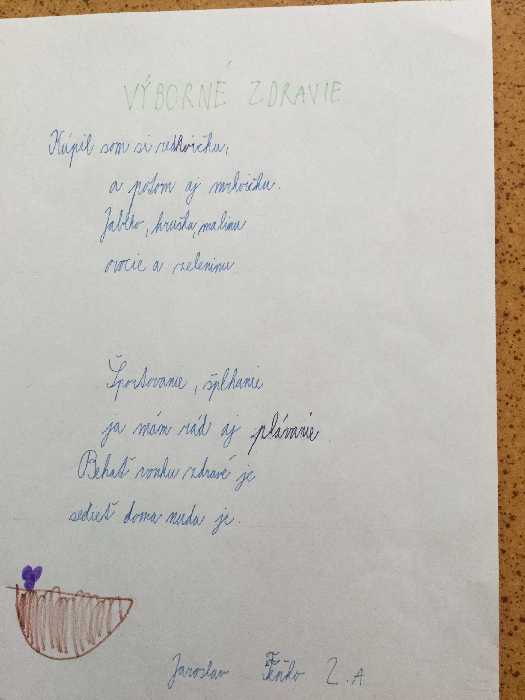 VÝBORNÉ ZDRAVIE
Kúpil som si reďkovičku,
a potom aj mrkvičku.
Jablko, hruška, malinu
ovocie a zeleninu
Športovanie, šplhanie
ja mám rád aj plávanie
Behať vonku zdravé je
sedieť doma nuda je.
Jaroslav 2.A